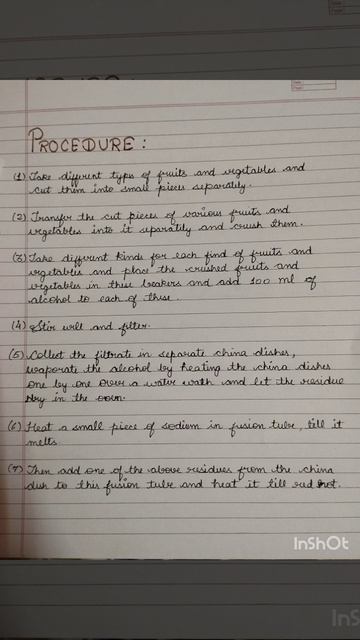 PROCEDURE :
(1) Take different types of fruits and vegetables and
cut them into small pieces separately.
(2) Transfer the cut pieces of various fruits and
vegetables into it separately and crush them.
(3) Take different kinds for each find of fruits and
vegetables and place the crushed fruits and
vegetables in these beakers and add 100 ml of
alcohol to each of these.
(4) Stir well and filter.
(5) Collect the filtrate in separate china dishes,
evaporate the alcohol by heating the china dishes
one by one over a water bath and let the residue
dry in the oven.
(6) Heat a small piece of sodium in fusion tube, till it
melts.
(7) Then add one of the above residues from the china
dish to this fusion tube and heat it till red hot.
InShOt